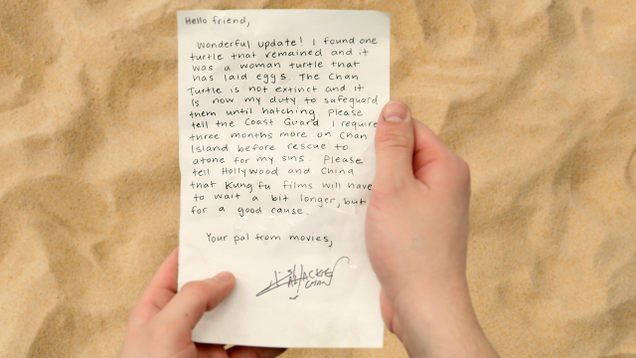 Hello friend,
Wonderful update! I found one
turtle that remained and it
was a woman turtle that
has laid eggs. The Chan
Turtle is not extinct and it
is now my duty to safeguard
them until hatching. Please
tell the Coast Guard I require
three months more on Chan
Island before rescue to
atone for my sins. Please
tell Hollywood and China
that Kung fu films will have
to wait a bit longer, but
for a good cause.
Your pal from movies,
JACKIE
CHAN